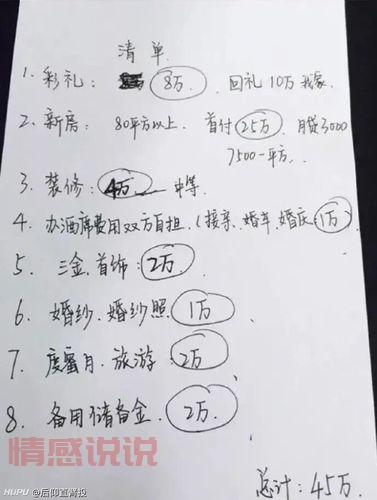 清单.
1. 彩礼: 8万. 回礼 10万 我家.
2. 新房: 80平方以上. 首付25万. 月贷3000
7500一平方.
3. 装修: 4万 中等.
4. 办酒席费用双方自担.(接亲.婚车.婚庆.1万)
5. 三金.首饰: 2万.
6. 婚纱.婚纱照. 1万.
7. 度蜜月.旅游: 2万.
8. 备用储备金. 2万.
情感说说
总计: 45万.
HUPU @后仰直臂投